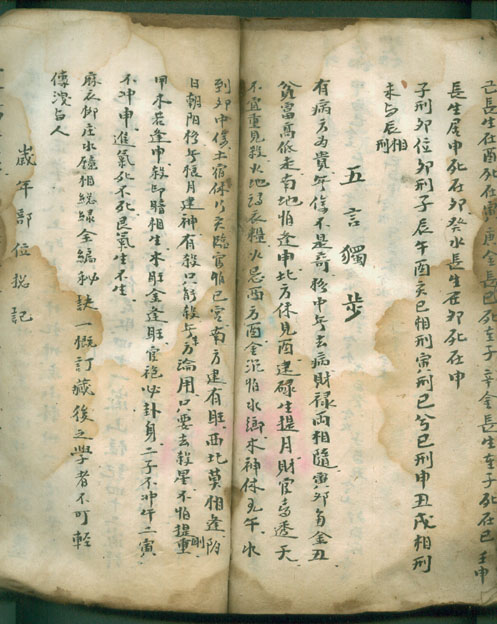 己長生在酉死在寅庚金長生巳死在子辛金長生在子死在巳壬申
長生庚申死在卯癸水長生在卯死在申
子刑卯位卯刑子辰午酉亥巳相刑寅刑巳兮巳刑申丑戌相刑
未与辰相刑
五言獨步
有病方為貴無傷不是奇格中無去病財祿両相隨寅卯多金丑
貧富高低走南地怕逢申北方休見酉建碌生提月財官喜透天
不宜重見殺火地為衣糧火忌西方酉金沉怕水鄉木神休見午水
到卯中傷土宿休行亥臨官怕巳宮南方逮有旺西北莫相逢陰
日朝阳格無根月建神有殺只斬殺無方論用只要去殺星不怕提重
甲木若逢申殺印暗相生木旺金逢旺官袍必卦身二子不冲午二寅
不冲申進氣死不死退氣生不生
麻衣柳庄水鏡相総録全編秘訣一慨訂藏後之學者不可輕
傳淺人
歲年部位総記